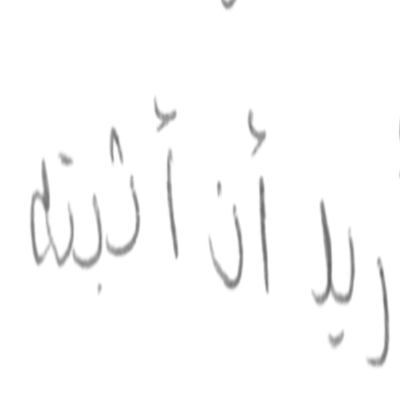 ريد أن أثبته